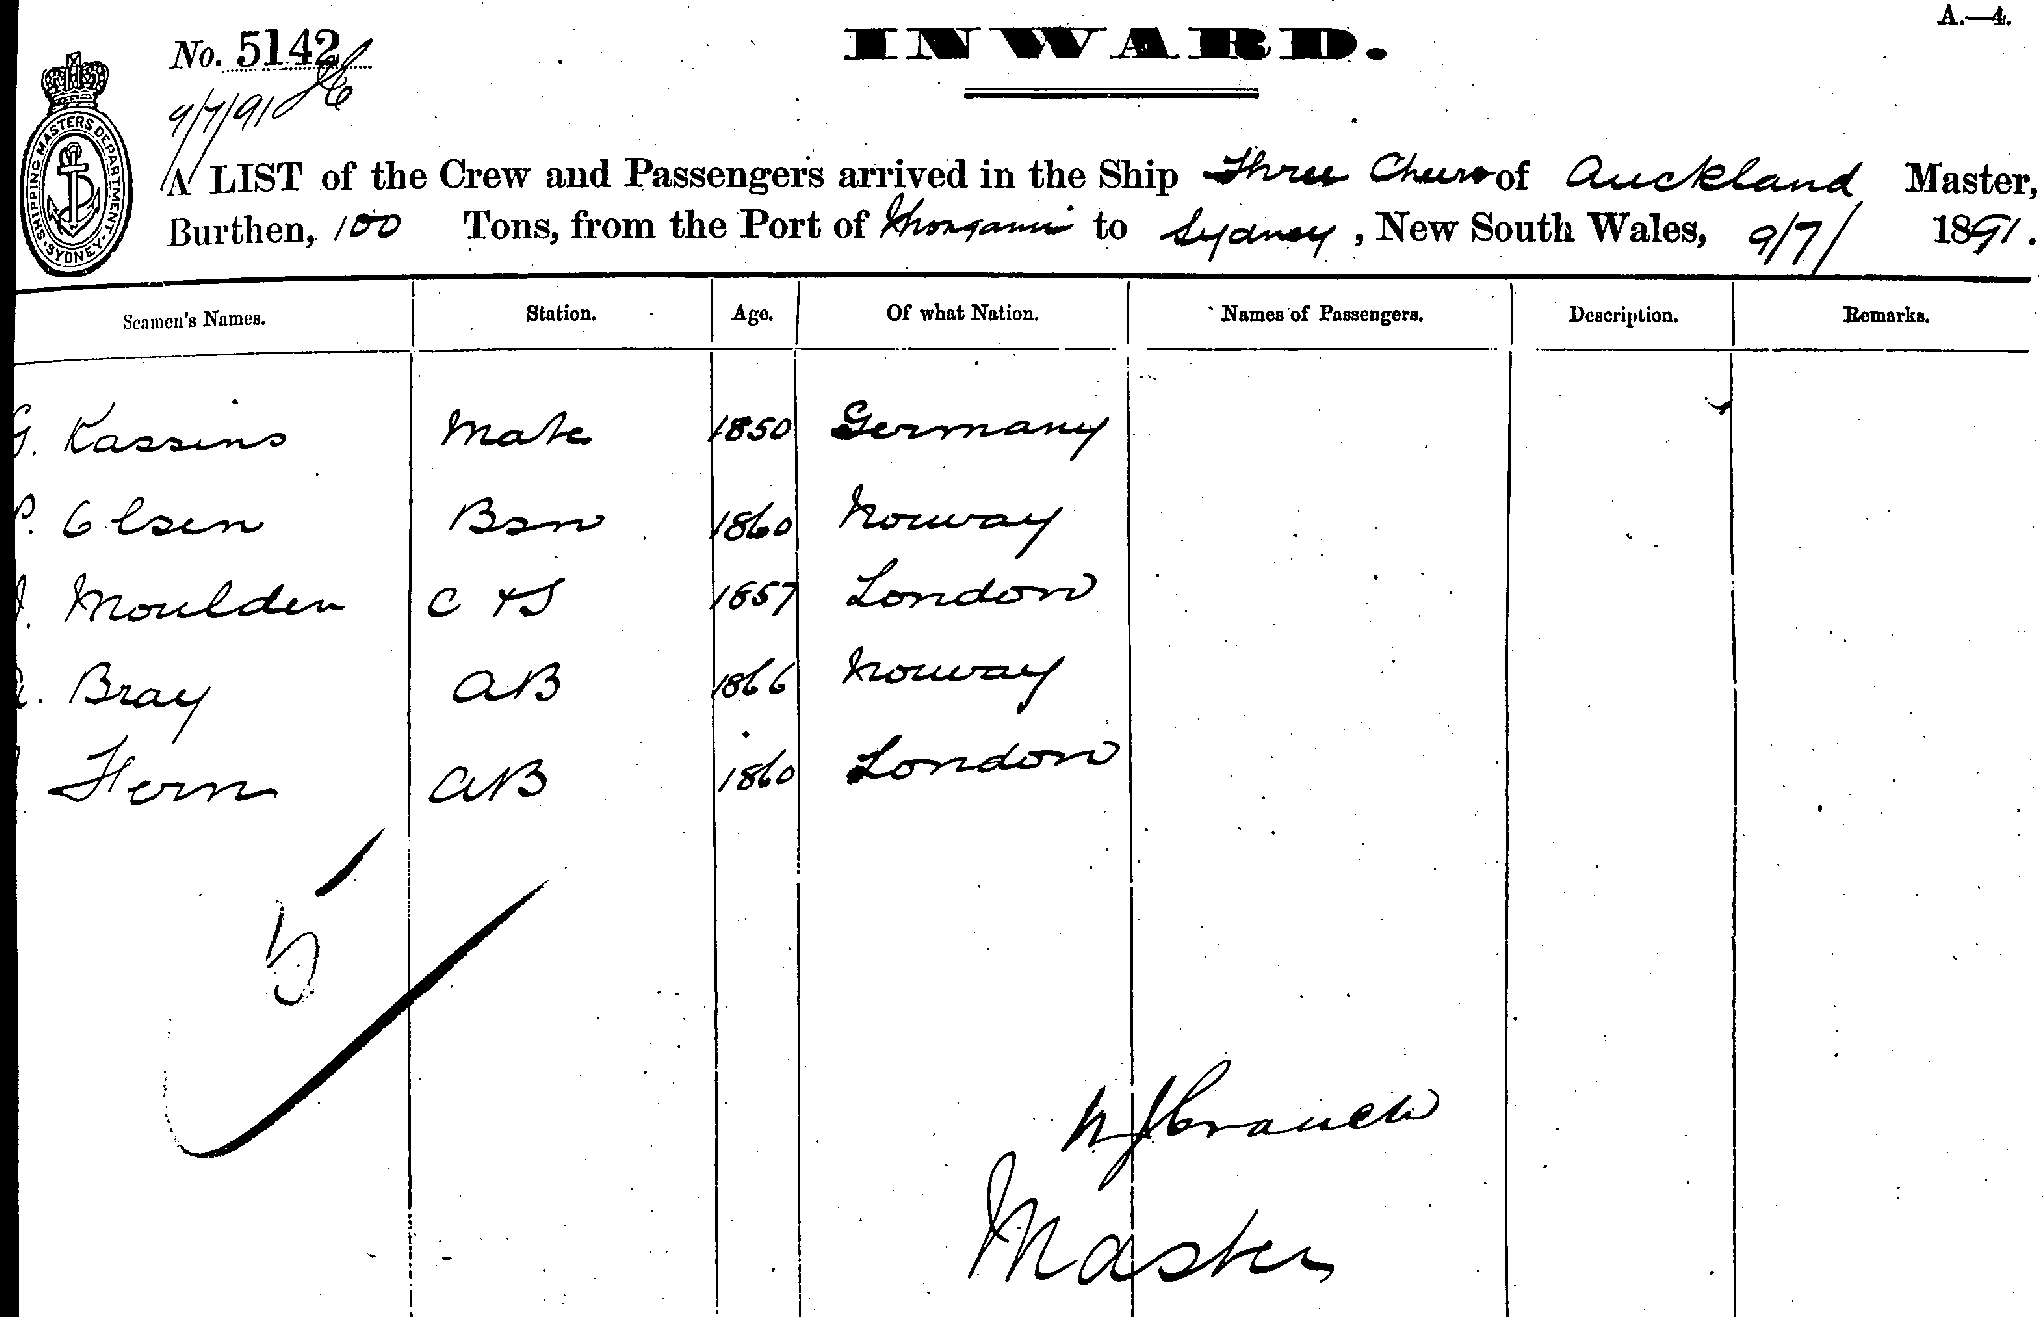 A.—4.
No. 5142
INWARD.
9/7/91
SHIPPING MASTERS DEPARTMENT. SYDNEY.
A LIST of the Crew and Passengers arrived in the Ship Three Cheers of Auckland Master,
Burthen, 100 Tons, from the Port of to Sydney, New South Wales, 9/7/ 1891.
Seamen's Names. Station. Age. Of what Nation. Names of Passengers. Description. Remarks.
G. Kassins Mate 1850 Germany
P. Olsen Bsn 1860 Norway
J. Moulden C & S 1857 London
A. Bray AB 1866 Norway
Hern AB 1860 London
5
Master